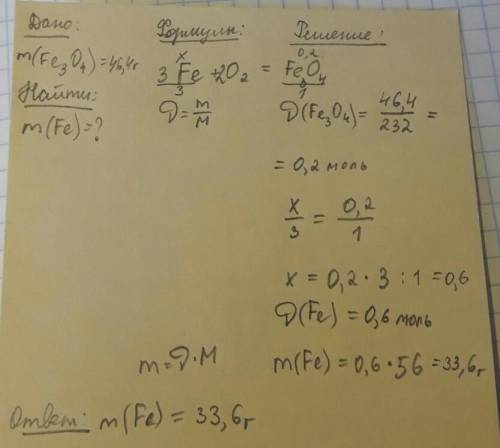 Дано:
m(Fe3O4)=46,4г
Найти:
m(Fe)=?
Формулы:
x
3 Fe + 2O2 =
3
D = m/M
m = D·M
Решение:
0,2
Fe3O4
1
D(Fe3O4) = 46,4/232 =
= 0,2 моль
x/3 = 0,2/1
x = 0,2 · 3 : 1 = 0,6
D(Fe) = 0,6 моль
m(Fe) = 0,6 · 56 = 33,6г
Ответ: m(Fe) = 33,6г